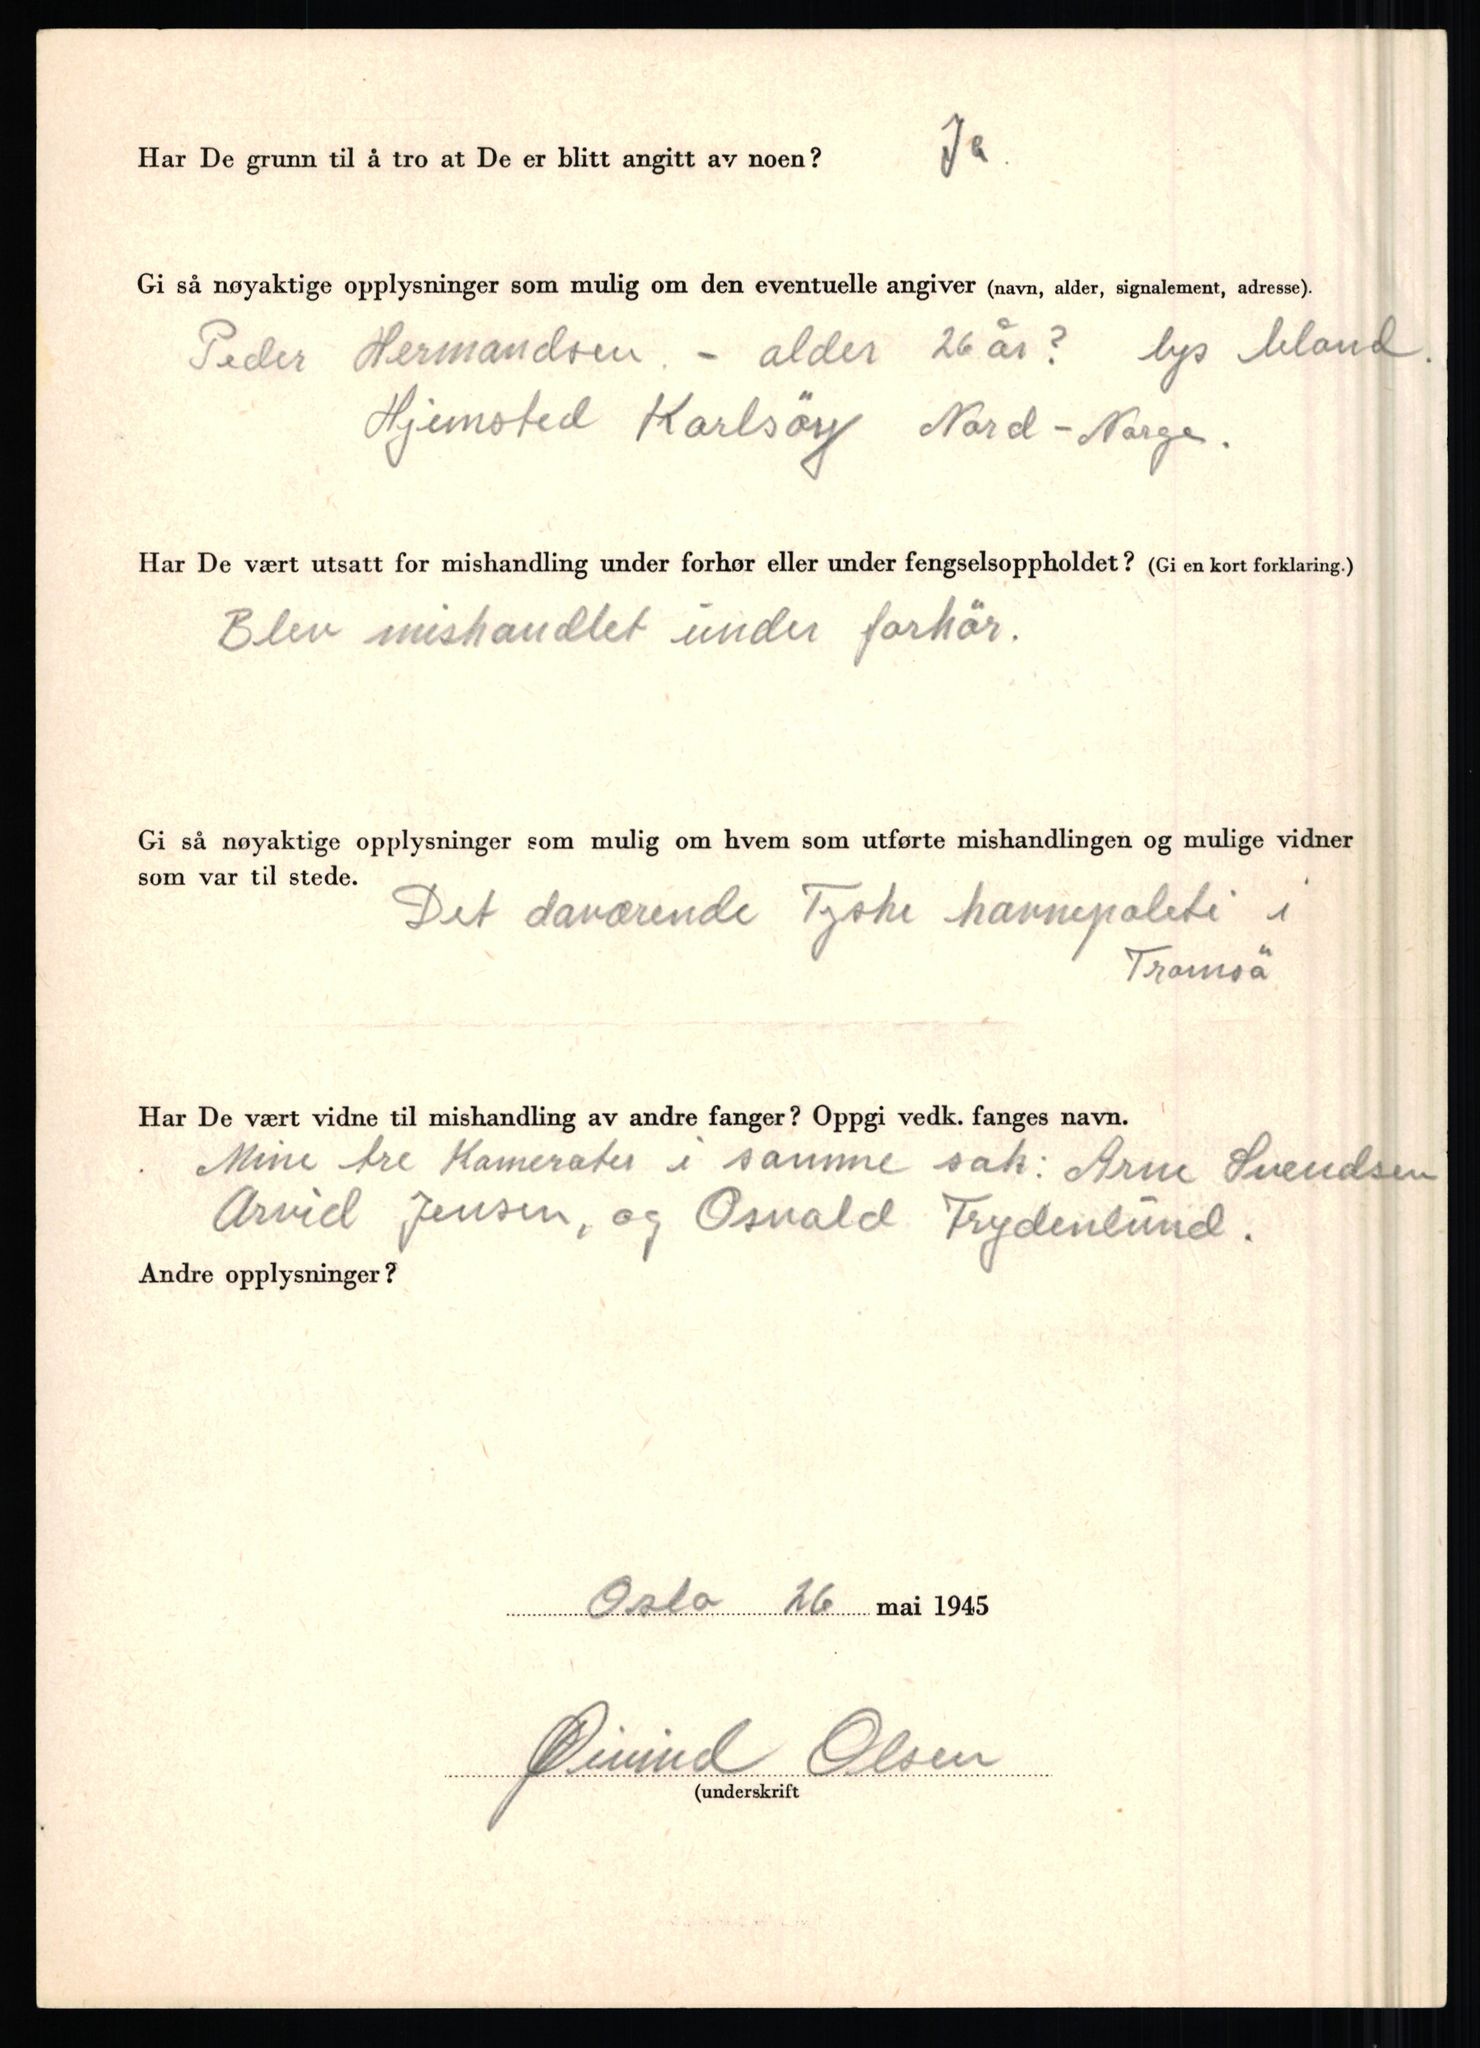 Har De grunn til å tro at De er blitt angitt av noen? Ja.
Gi så nøyaktige opplysninger som mulig om den eventuelle angiver (navn, alder, signalement, adresse).
Peder Hermandsen. - alder 26 år? lys blond.
Hjemsted Karlsöy Nord-Norge.
Har De vært utsatt for mishandling under forhør eller under fengselsoppholdet? (Gi en kort forklaring.)
Blev mishandlet under forhör.
Gi så nøyaktige opplysninger som mulig om hvem som utførte mishandlingen og mulige vidner
som var til stede.
Det daværende Tyske havnepoleti i
Tromsö
Har De vært vidne til mishandling av andre fanger? Oppgi vedk. fanges navn.
Mine tre Kamerater i samme sak: Arne Svendsen
Arvid Jensen, og Osvald Trydenlund.
Andre opplysninger?
Oslo 26 mai 1945
Øivind Olsen
(underskrift